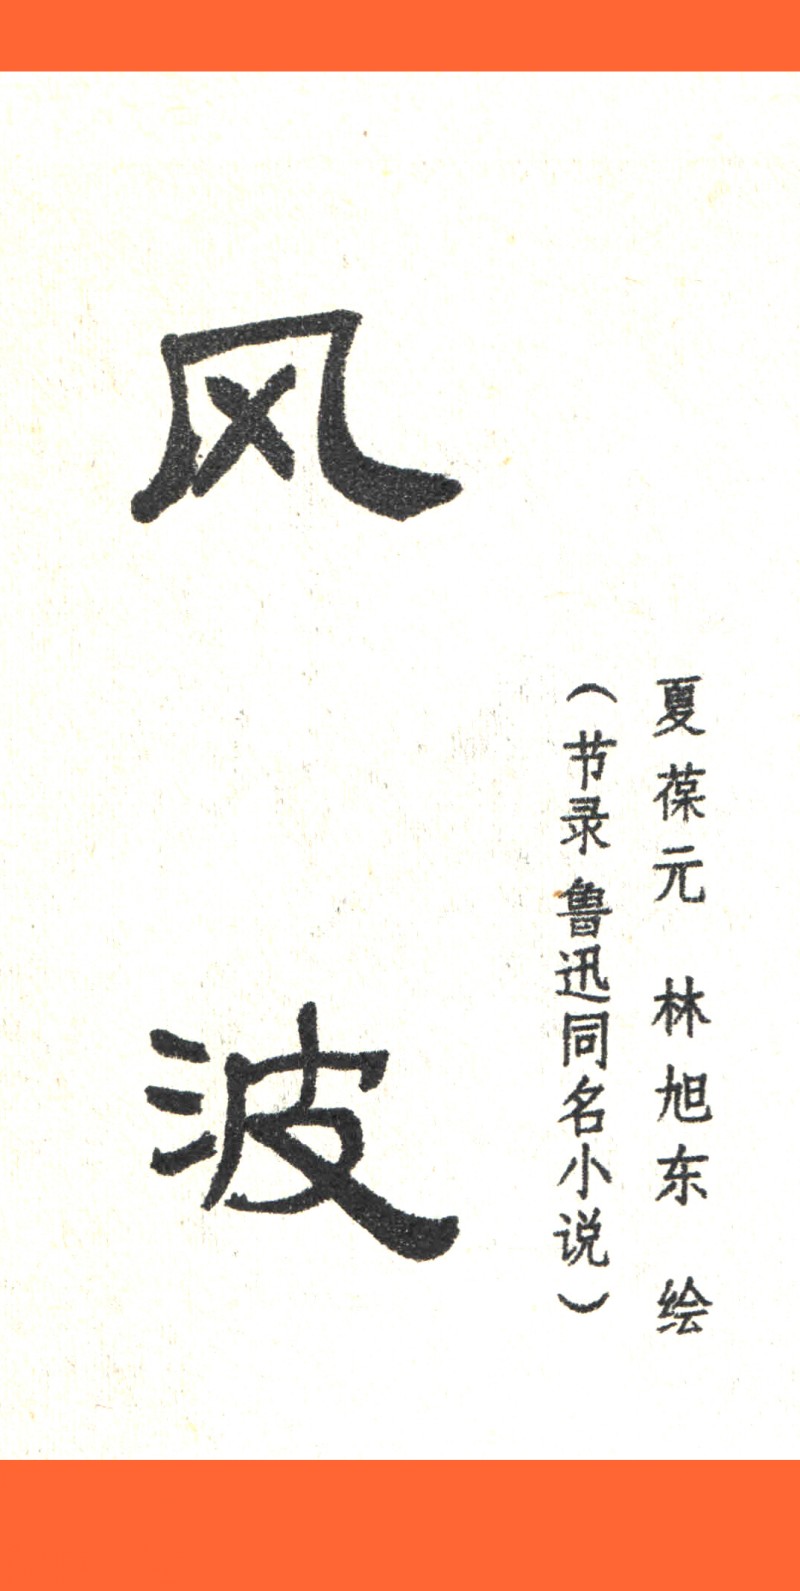 风波
(节录鲁迅同名小说)
夏葆元 林旭东 绘